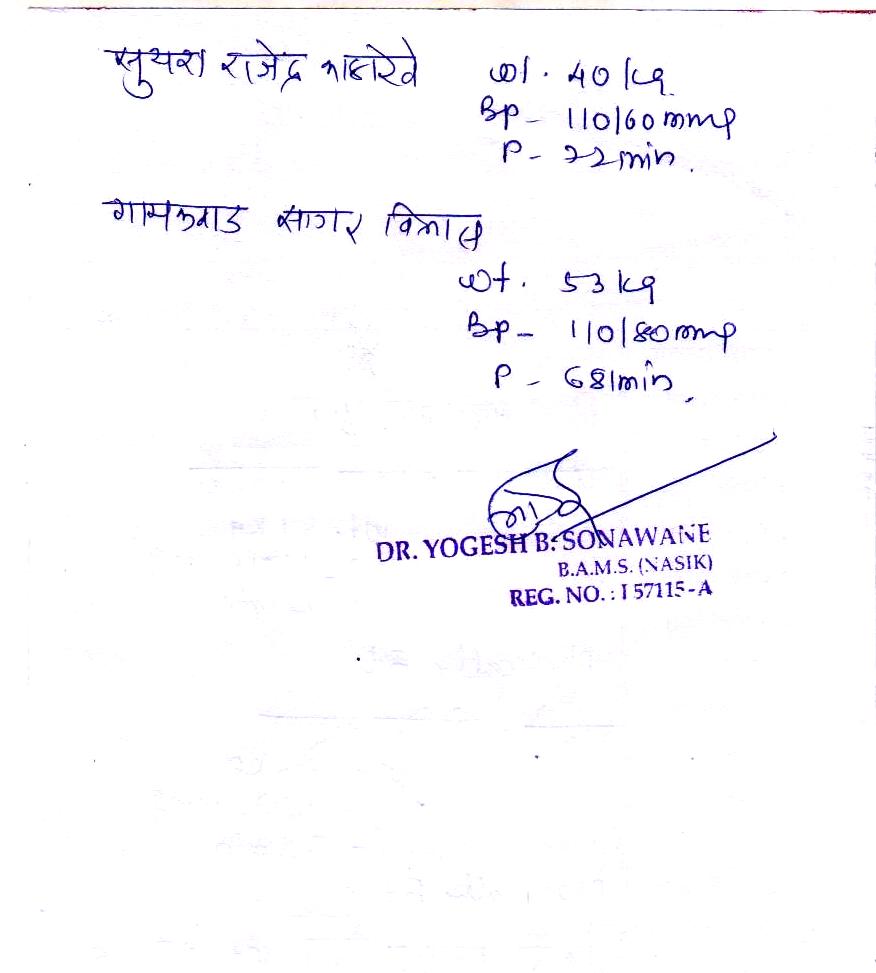 सुयश राजेंद्र
wt. 40 kg
Bp - 110/60 mmhg
P - 72 min.
गायकवाड सागर विलास
wt. 53 kg
Bp - 110/80 mmhg
P - 68/min.
DR. YOGESH B. SONAWANE
B.A.M.S. (NASIK)
REG. NO. : I 57115-A